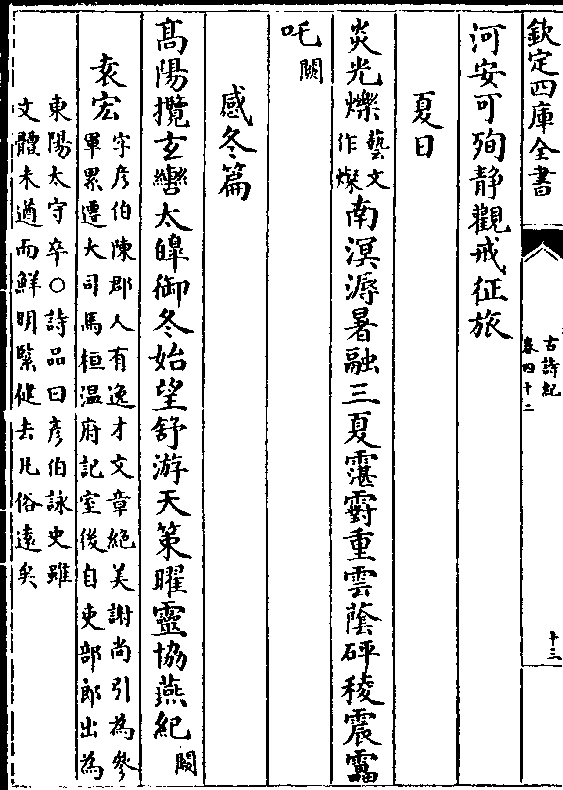 欽定四庫全書
古詩紀
卷四十二
十三
河安可殉静觀戒征旅
夏日
炎光爍藝文作燦南溟溽暑融三夏靉霴重雲蔭砰稜震靁
吒闕
感冬篇
髙陽攬玄轡太皥御冬始望舒游天策曜靈協燕紀闕
袁宏字彦伯陳郡人有逸才文章絶美謝尚引為參
軍累遷大司馬桓温府記室後自吏部郎出為
東陽太守卒○詩品曰彦伯詠史雖
文體未遒而鮮明緊健去凡俗遠矣